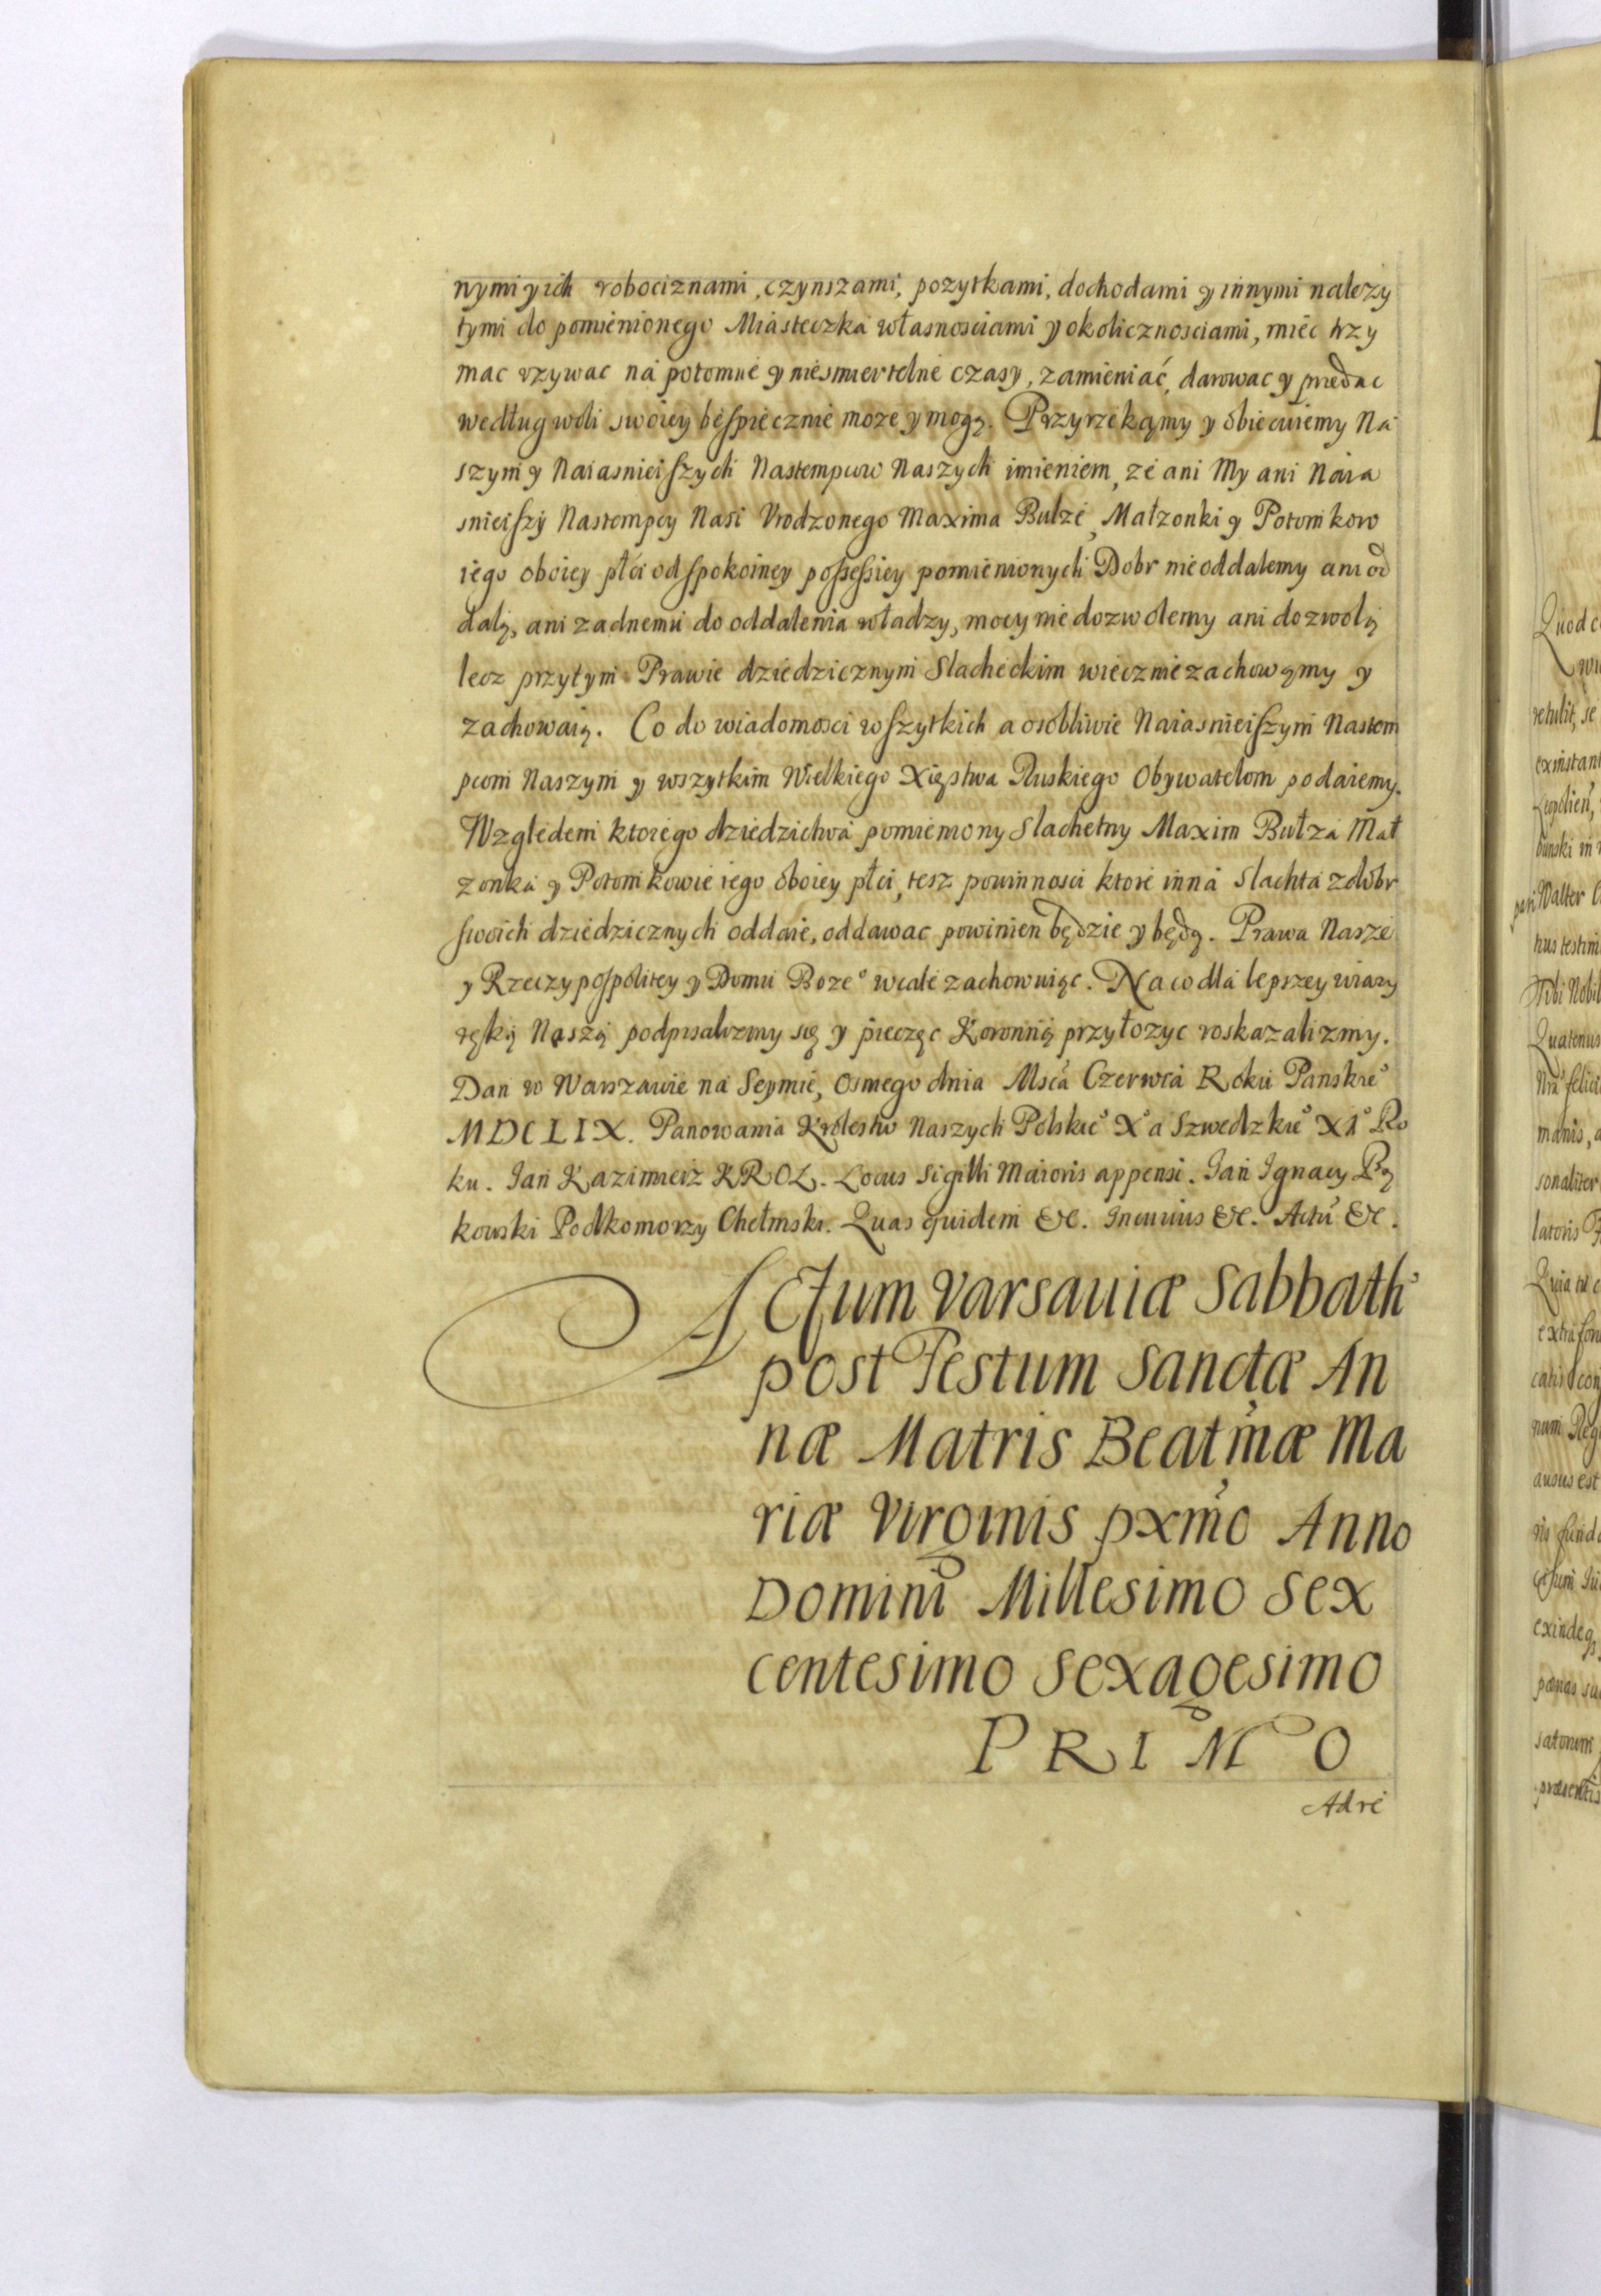 nymi y ich robociznami, czynszami, pozytkami, dochodami y innymi nalezy
tymi do pomienionego Miasteczka własnosciami y okolicznosciami, miec trzy
mac vzywac na potomne y niesmiertelne czasy, zamieniać, darowac y predac
według woli swoiey bespiecznie moze y mogą. Przyrzekamy y obiecuiemy Na
szym y Naiasnieiszych Nastempcow Naszych imieniem, ze ani My ani Naia
snieiszy Nastempcy Nasi Vrodzonego Maxima Bułze, Małzonki y Potomkow
iego oboiey płci od spokoiney possessiey pomienionych Dobr nie oddalemy ani od
dalą, ani zadnemu do oddalenia władzy, mocy nie dozwolemy ani dozwolą
lecz przytym Prawie dziedzicznym Slacheckim wiecznie zachowamy y
zachowaią. Co do wiadomosci wszytkich a osobliwie Naiasnieiszym Nastem
pcom Naszym y wszytkim Wielkiego Xięstwa Ruskiego Obywatelom podaiemy.
Względem ktorego dziedzictwa pomieniony Slachetny Maxim Bułza Mał
zonka y Potomkowie iego oboiey płci, tesz powinnosci ktore inna Slachta z dobr
swoich dziedzicznych oddaie, oddawac powinien będzie y będą. Prawa Nasze
y Rzeczypospolitey y Domu Boze° wcale zachowuiąc. Na co dla lepszey wiary
ręką Naszą podpisalizmy się y pieczęc Koronną przyłozyc roskazalizmy.
Dan w Warszawie na Seymie, Osmego dnia Msca Czerwca Roku Panskie°
MDCLIX. Panowania Krolestw Naszych Polskie° X° a Szwedzkie° XI° Ro
ku. Ian Kazimierz KROL. Locus Sigilli Maioris appensi. Ian Ignacy Bą
kowski Podkomorzy Chełmski. Quas quidem &c. In cuius &c. Actu &c.
ACtum Varsauiæ Sabbath°
post Festum Sanctæ An
næ Matris Beatmæ Ma
riæ Virginis pxmo Anno
Domini Millesimo Sex
centesimo Sexagesimo
PRIMO
Adre
Quod c
retulit, se
exinstant
bunski in
Walter
hus testim
Tibi Nobil
Quatenus
Nra felici
manis, a
sonaliter
latoris
extra for
catis con
num Reg
ausus est
ris fund
exindeq
pænas su
satorum
præsentis